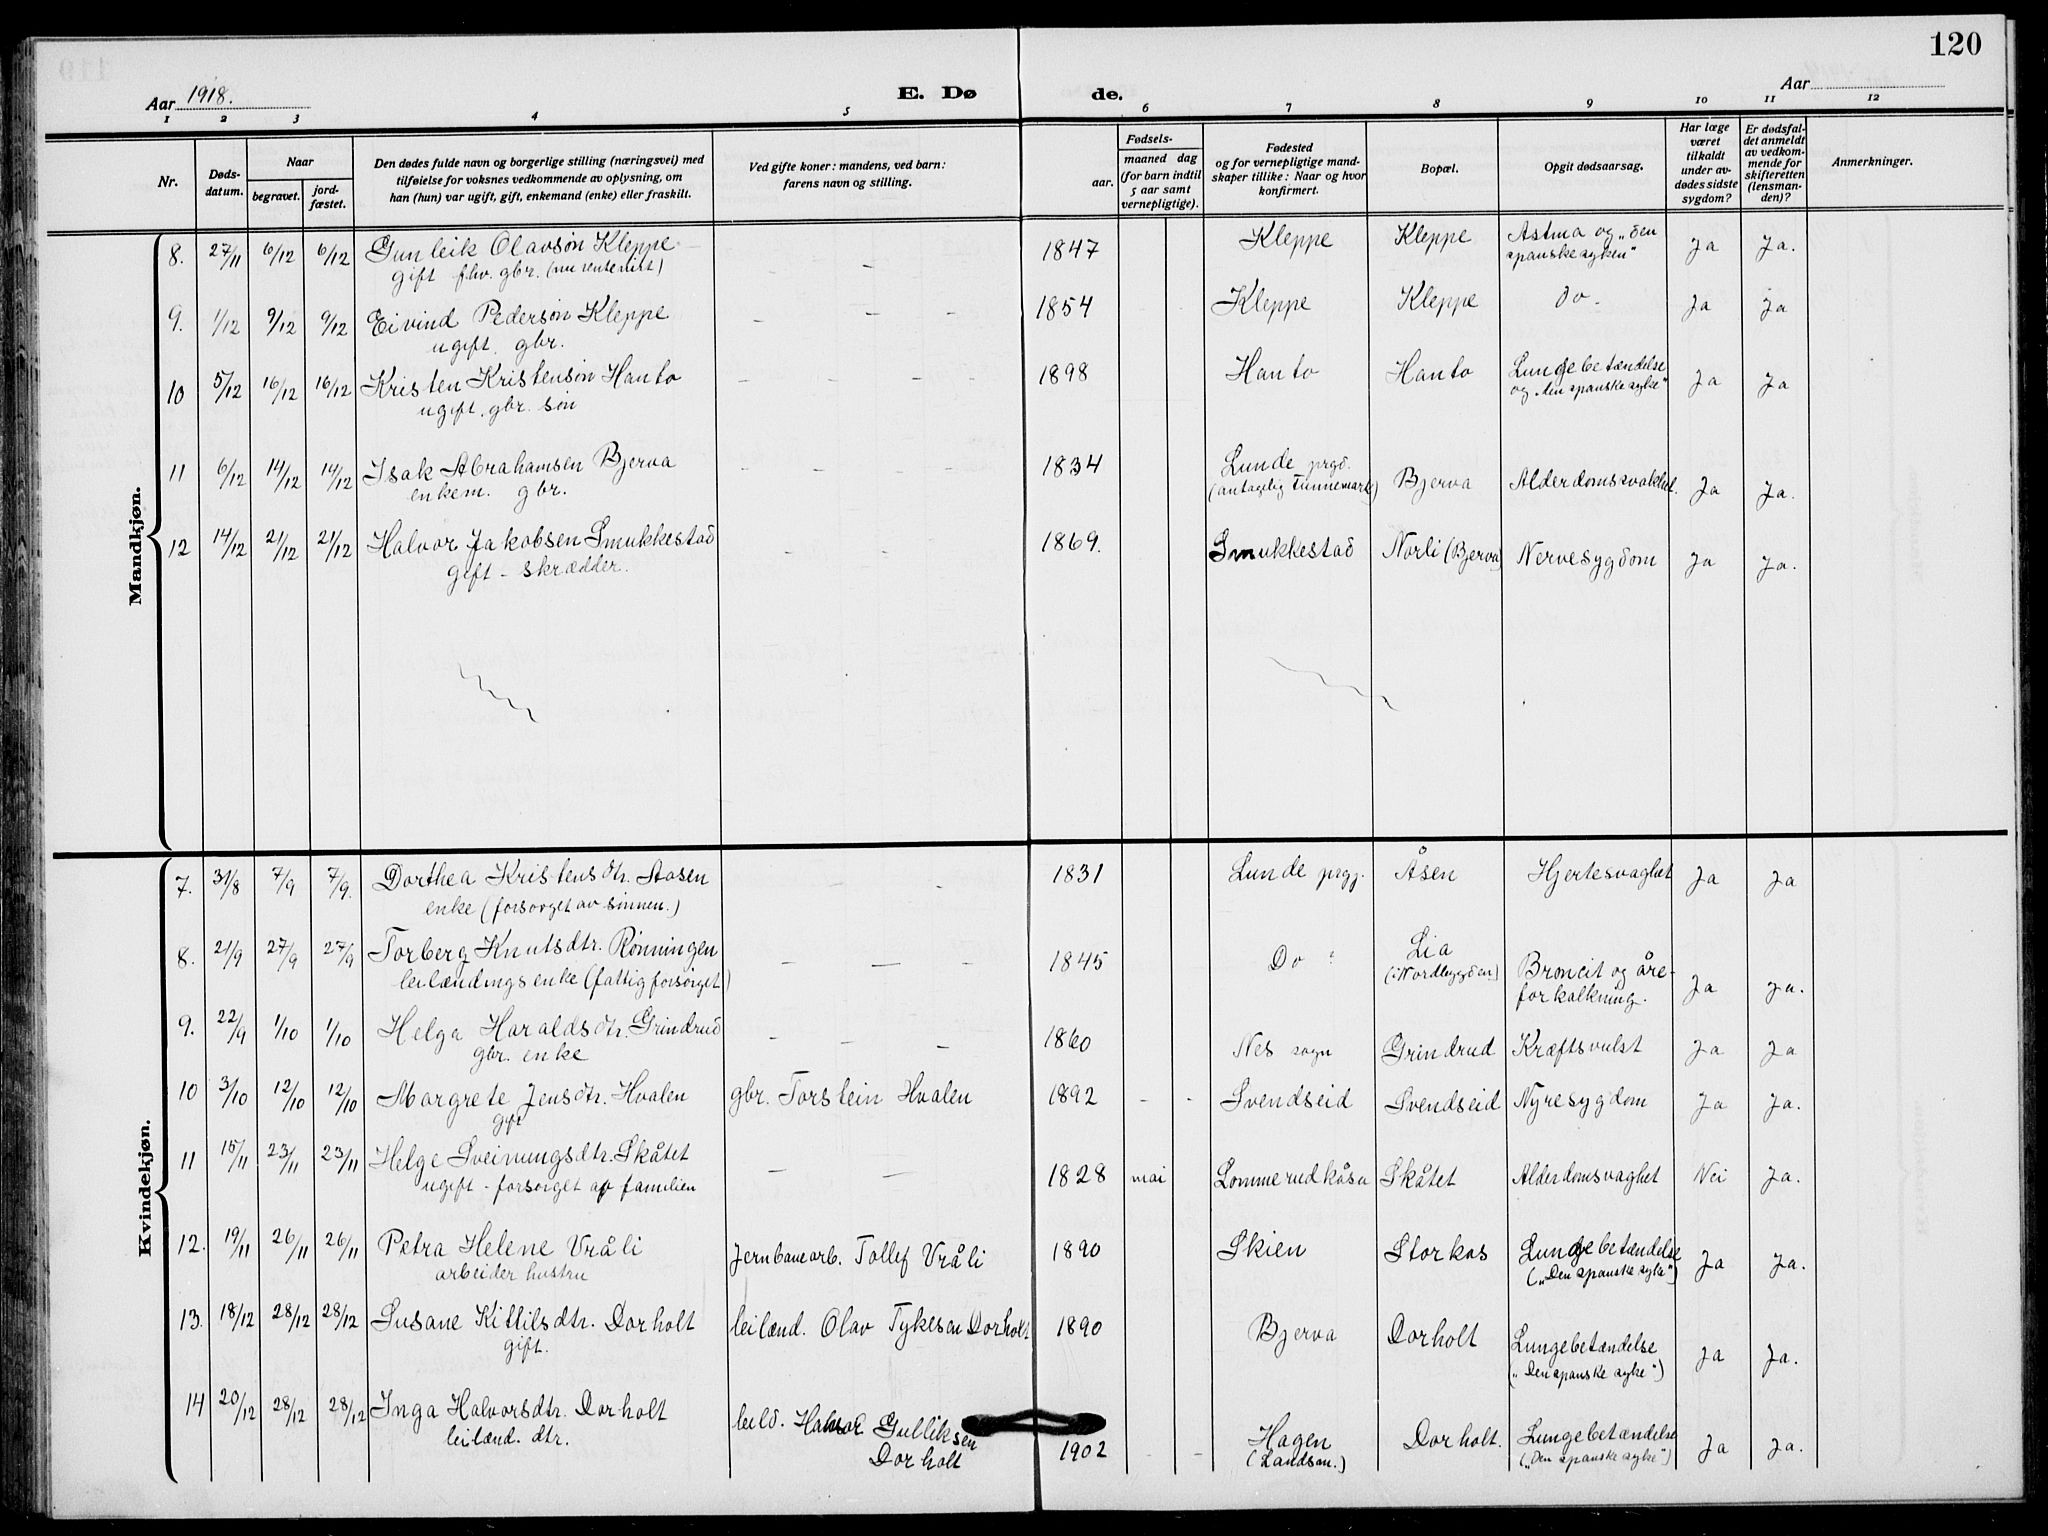 120
Aar 1918.
E. Dø
de.
Aar
1 2 3 4 5 6 7 8 9 10 11 12
Nr.
Døds-
datum.
Naar
begravet.
jord-
fæstet.
Den dødes fulde navn og borgerlige stilling (næringsvei) med
tilføielse for voksnes vedkommende av oplysning, om
han (hun) var ugift, gift, enkemand (enke) eller fraskilt.
Ved gifte koner: mandens, ved barn:
farens navn og stilling.
Fødsels-
aar.
maaned dag
(for barn indtil
5 aar samt
vernepligtige).
Fødested
og for vernepligtige mand-
skaper tillike: Naar og hvor
konfirmert.
Bopæl.
Opgit dødsaarsag.
Har læge
været
tilkaldt
under av-
dødes sidste
sygdom?
Er dødsfal-
det anmeldt
av vedkom-
mende for
skifteretten
(lensman-
den)?
Anmerkninger.
Mandkjøn.
8. 27/11 6/12 6/12 Gunleik Olavsøn Kleppe - - 1847 Kleppe Kleppe Astma og „den
gift fhv. gbr. (nu rentenist) spanske syken" Ja Ja.
9. 1/12 9/12 9/12 Eivind Pedersøn Kleppe - - - 1854 Kleppe Kleppe do - Ja Ja
ugift. gbr.
10 5/12 16/12 16/12 Kristen Kristensøn Hanto - - - - 1898 Hanto Hanto Lungebetændelse
ugift. gbr. søn og „den spanske syke" Ja Ja
11 6/12 14/12 14/12 Isak Abrahamsen Bjerva - - - - 1834 Lunde prgd.
enkem. gbr. (antagelig Tunnemark) Bjerva Alderdomssvakhet. Ja Ja.
12 14/12 21/12 21/12 Halvor Jakobsen Smukkestad - - 1869. Smukkestad Norli (Bjerva) Nervesygdom Ja Ja.
gift - skrædder.
Kvindekjøn.
7. 31/8 7/9 7/9. Dorthea Kristensdtr. Aasen - - 1831 Lunde prgj. Åsen Hjertesvaghet Ja Ja
enke (forsørget av sønnen.)
8. 21/9 27/9 27/9 Torberg Knutsdtr. Rønningen - - - 1845 Do " Lia
leilændings enke (fattigforsørget) (i Nordbygden) Broncit og åre-
forkalkning. Ja Ja.
9. 22/9 1/10 1/10 Helga Haraldsdtr. Grindrud - - - 1860 Nes sogn Grindrud Kræftsvulst Ja Ja
gbr. enke
10 3/10 12/10 12/10 Margrete Jensdtr. Hvalen gbr. Torstein Hvalen 1892 - - Svendseid Svendseid Nyresygdom Ja Ja.
gift
11 15/11 23/11 23/11 Helge Sveinungsdtr. Skåtet - - 1828 mai Lommerudkåsa Skåtet Alderdomsvaghet Nei Ja.
ugift - forsørget af familien
12. 19/11 26/11 26/11 Petra Helene Vråli Jernbanearb. Tollef Vråli 1890 Skien Storkås Lungebetændelse
arbeider hustru („Den spanske syke") Ja Ja.
13. 18/12 28/12 28/12 Susane Kittilsdtr. Dorholt leilænd. Olav Tykesen Dorholt 1890 Bjerva Dorholt Lungebetændelse
gift. („Den spanske syke") Ja Ja.
14 20/12 28/12 28/12 Inga Halvorsdtr. Dorholt leild. Halvor Gulliksen
leilænd. dtr. Dorholt 1902 - - Hagen
(Landsm.) Dorholt. Lungebetændelse
(„Den spanske syke") Ja Ja.